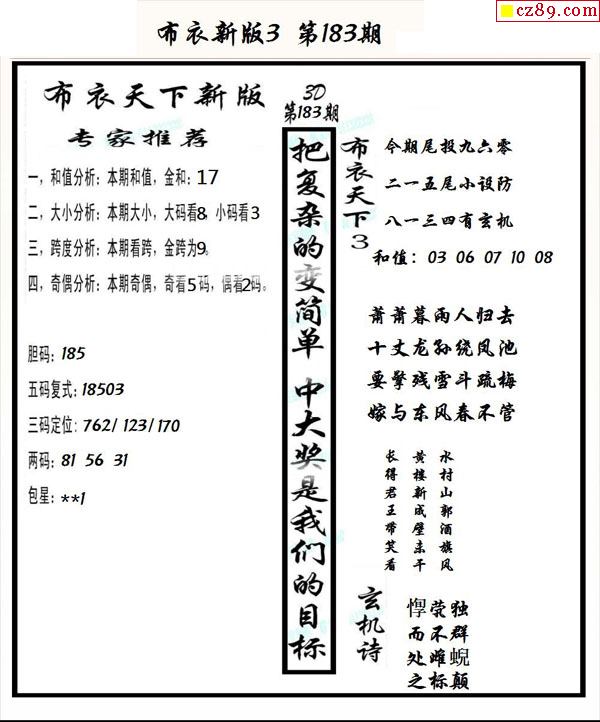 cz89.com
布衣新版3 第183期
布衣天下新版
专家推荐
一，和值分析：本期和值，金和：17
二，大小分析：本期大小，大码看8，小码看3
三，跨度分析：本期看跨，金跨为9。
四，奇偶分析：本期奇偶，奇看5码，偶看2码。
胆码：185
五码复式：18503
三码定位：762/123/170
两码：81 56 31
包星：**1
3D
第183期
把复杂的变简单 中大奖是我们的目标
布衣天下3
今期尾投九六零
二一五尾小设防
八一三四有玄机
和值：03 06 07 10 08
萧萧暮雨人归去
十丈龙孙绕凤池
要擎残雪斗疏梅
嫁与东风春不管
水村山郭酒旗风
黄楼新成壁未干
长得君王带笑看
玄机诗
独群蜺颠
荧不雌标
惸而处之